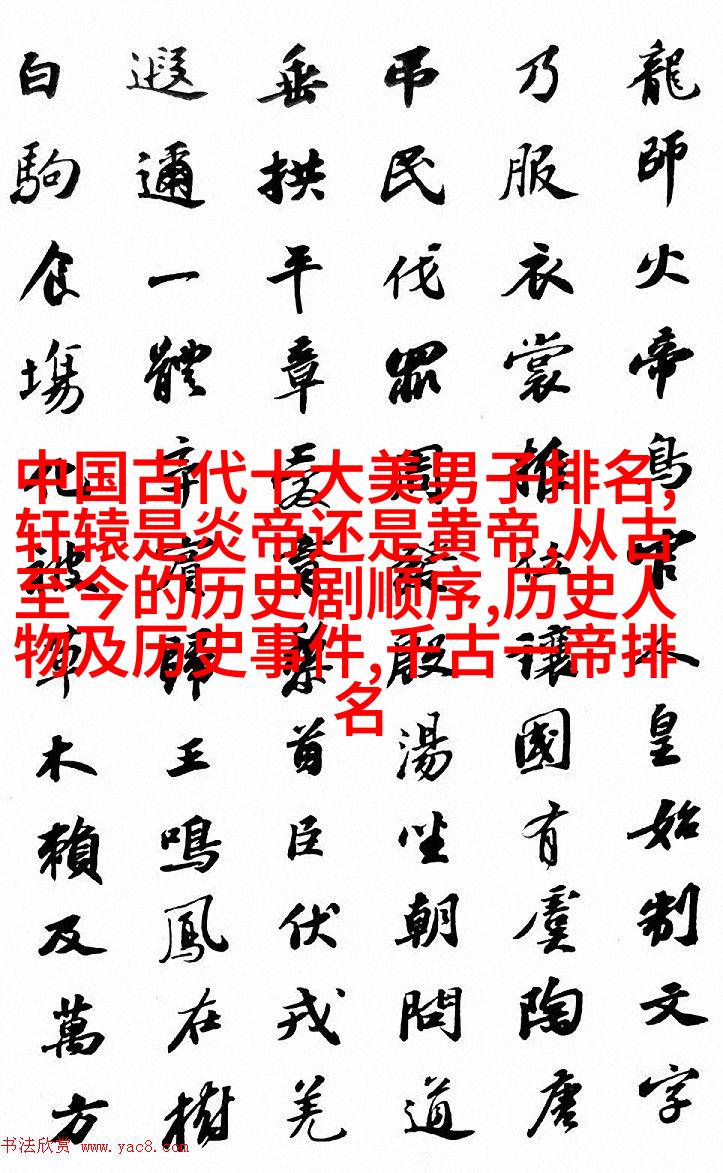 龍師火帝鳥官人皇始制文字
乃服衣裳推位讓國有虞陶唐
吊民伐罪周發殷湯坐朝問道
垂拱平章愛育黎首臣伏戎羌
遐邇一體率賓歸王鳴鳳在樹
白駒食場化被草木賴及萬方
中国古代十大美男子排名,
轩辕是炎帝还是黄帝,从古
至今的历史剧顺序,历史人
物及历史事件,千古一帝排
名
书法欣赏 www.yac8.com